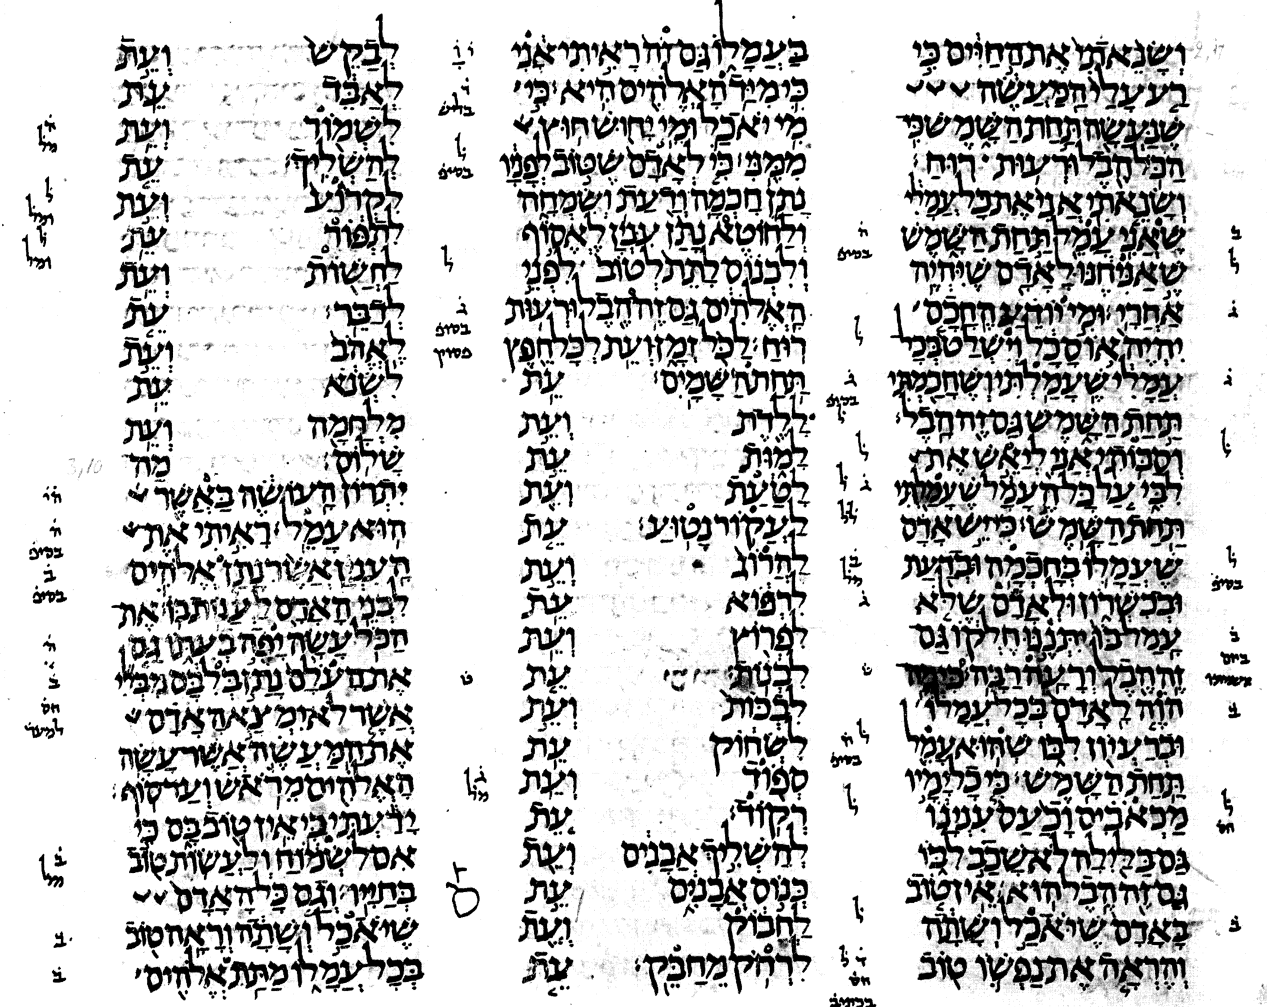 וְשָׂנֵאתִי אֶת הַחַיִּים כִּי
רַע עָלַי הַמַּעֲשֶׂה
שֶׁנַּעֲשָׂה תַּחַת הַשָּׁמֶשׁ כִּי
הַכֹּל הֶבֶל וּרְעוּת רוּחַ׃
וְשָׂנֵאתִי אֲנִי אֶת כָּל עֲמָלִי
שֶׁאֲנִי עָמֵל תַּחַת הַשָּׁמֶשׁ
שֶׁאַנִּיחֶנּוּ לָאָדָם שֶׁיִּהְיֶה
אַחֲרָי׃ וּמִי יוֹדֵעַ הֶחָכָם
יִהְיֶה אוֹ סָכָל וְיִשְׁלַט בְּכָל
עֲמָלִי שֶׁעָמַלְתִּי וְשֶׁחָכַמְתִּי
תַּחַת הַשָּׁמֶשׁ גַּם זֶה הָבֶל׃
וְסַבּוֹתִי אֲנִי לְיַאֵשׁ אֶת
לִבִּי עַל כָּל הֶעָמָל שֶׁעָמַלְתִּי
תַּחַת הַשָּׁמֶשׁ׃ כִּי יֵשׁ אָדָם
שֶׁעֲמָלוֹ בְּחָכְמָה וּבְדַעַת
וּבְכִשְׁרוֹן וּלְאָדָם שֶׁלֹּא
עָמַל בּוֹ יִתְּנֶנּוּ חֶלְקוֹ גַּם
זֶה הֶבֶל וְרָעָה רַבָּה׃ כִּי מֶה
הֹוֶה לָאָדָם בְּכָל עֲמָלוֹ
וּבְרַעְיוֹן לִבּוֹ שֶׁהוּא עָמֵל
תַּחַת הַשָּׁמֶשׁ׃ כִּי כָל יָמָיו
מַכְאֹבִים וָכַעַס עִנְיָנוֹ
גַּם בַּלַּיְלָה לֹא שָׁכַב לִבּוֹ
גַּם זֶה הֶבֶל הוּא׃ אֵין טוֹב
בָּאָדָם שֶׁיֹּאכַל וְשָׁתָה
וְהֶרְאָה אֶת נַפְשׁוֹ טוֹב
בַּעֲמָלוֹ גַּם זֹה רָאִיתִי אָנִי
כִּי מִיַּד הָאֱלֹהִים הִיא׃ כִּי
מִי יֹאכַל וּמִי יָחוּשׁ חוּץ
מִמֶּנִּי׃ כִּי לְאָדָם שֶׁטּוֹב לְפָנָיו
נָתַן חָכְמָה וְדַעַת וְשִׂמְחָה
וְלַחוֹטֶא נָתַן עִנְיָן לֶאֱסוֹף
וְלִכְנוֹס לָתֵת לְטוֹב לִפְנֵי
הָאֱלֹהִים גַּם זֶה הֶבֶל וּרְעוּת
רוּחַ׃ לַכֹּל זְמָן וְעֵת לְכָל חֵפֶץ
תַּחַת הַשָּׁמָיִם׃ עֵת
לָלֶדֶת וְעֵת
לָמוּת עֵת
לָטַעַת וְעֵת
לַעֲקוֹר נָטוּעַ׃ עֵת
לַהֲרוֹג וְעֵת
לִרְפּוֹא עֵת
לִפְרוֹץ וְעֵת
לִבְנוֹת׃ עֵת
לִבְכּוֹת וְעֵת
לִשְׂחוֹק עֵת
סְפוֹד וְעֵת
רְקוֹד׃ עֵת
לְהַשְׁלִיךְ אֲבָנִים וְעֵת
כְּנוֹס אֲבָנִים עֵת
לַחֲבוֹק וְעֵת
לִרְחֹק מֵחַבֵּק׃ עֵת
לְבַקֵּשׁ וְעֵת
לְאַבֵּד עֵת
לִשְׁמוֹר וְעֵת
לְהַשְׁלִיךְ׃ עֵת
לִקְרוֹעַ וְעֵת
לִתְפּוֹר עֵת
לַחֲשׁוֹת וְעֵת
לְדַבֵּר׃ עֵת
לֶאֱהֹב וְעֵת
לִשְׂנֹא עֵת
מִלְחָמָה וְעֵת
שָׁלוֹם׃ מַה
יִּתְרוֹן הָעוֹשֶׂה בַּאֲשֶׁר
הוּא עָמֵל׃ רָאִיתִי אֶת
הָעִנְיָן אֲשֶׁר נָתַן אֱלֹהִים
לִבְנֵי הָאָדָם לַעֲנוֹת בּוֹ׃ אֶת
הַכֹּל עָשָׂה יָפֶה בְעִתּוֹ גַּם
אֶת הָעֹלָם נָתַן בְּלִבָּם מִבְּלִי
אֲשֶׁר לֹא יִמְצָא הָאָדָם
אֶת הַמַּעֲשֶׂה אֲשֶׁר עָשָׂה
הָאֱלֹהִים מֵרֹאשׁ וְעַד סוֹף׃
יָדַעְתִּי כִּי אֵין טוֹב בָּם כִּי
אִם לִשְׂמוֹחַ וְלַעֲשׂוֹת טוֹב
בְּחַיָּיו׃ וְגַם כָּל הָאָדָם
שֶׁיֹּאכַל וְשָׁתָה וְרָאָה טוֹב
בְּכָל עֲמָלוֹ מַתַּת אֱלֹהִים׃